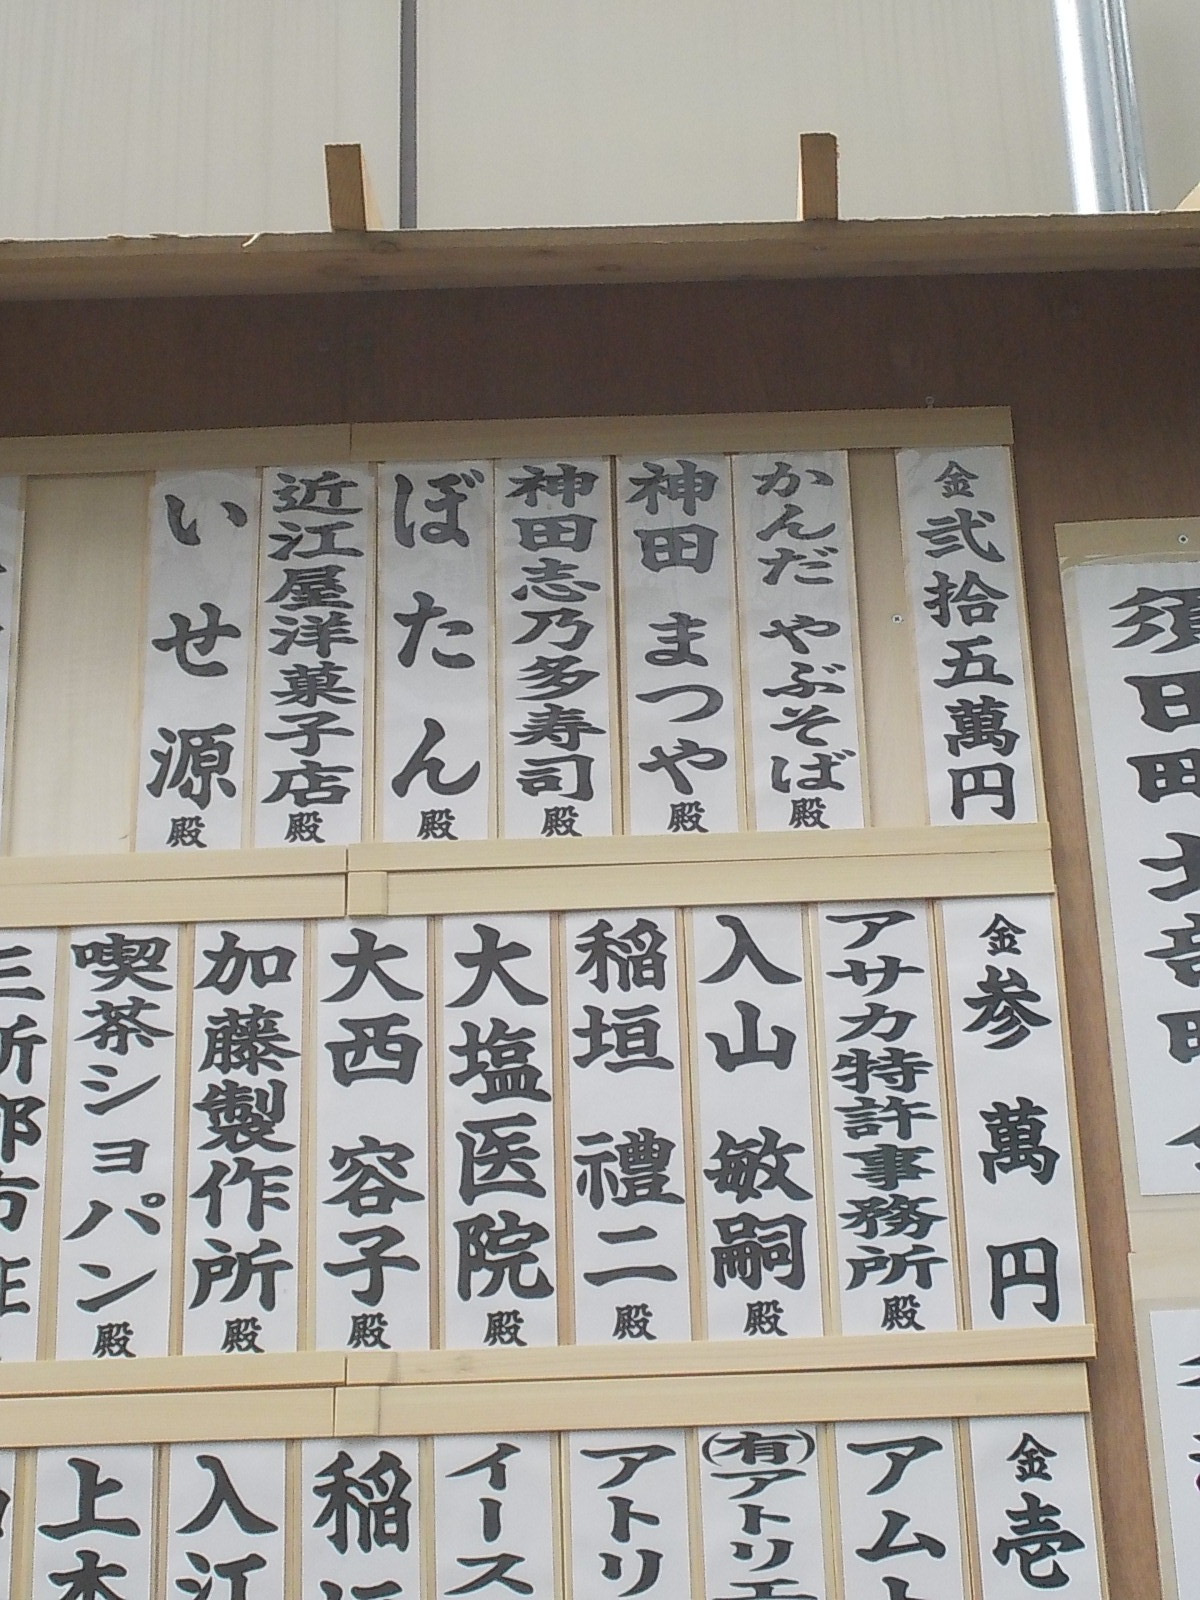 須田町北部町会
金弐拾五萬円
かんだやぶそば殿
神田まつや殿
神田志乃多寿司殿
ぼたん殿
近江屋洋菓子店殿
いせ源殿
金参萬円
アサカ特許事務所殿
入山敏嗣殿
稲垣禮二殿
大塩医院殿
大西容子殿
加藤製作所殿
喫茶ショパン殿
金壱
アム
(有)アトリエ
アトリ
イース
稲
入江
上木